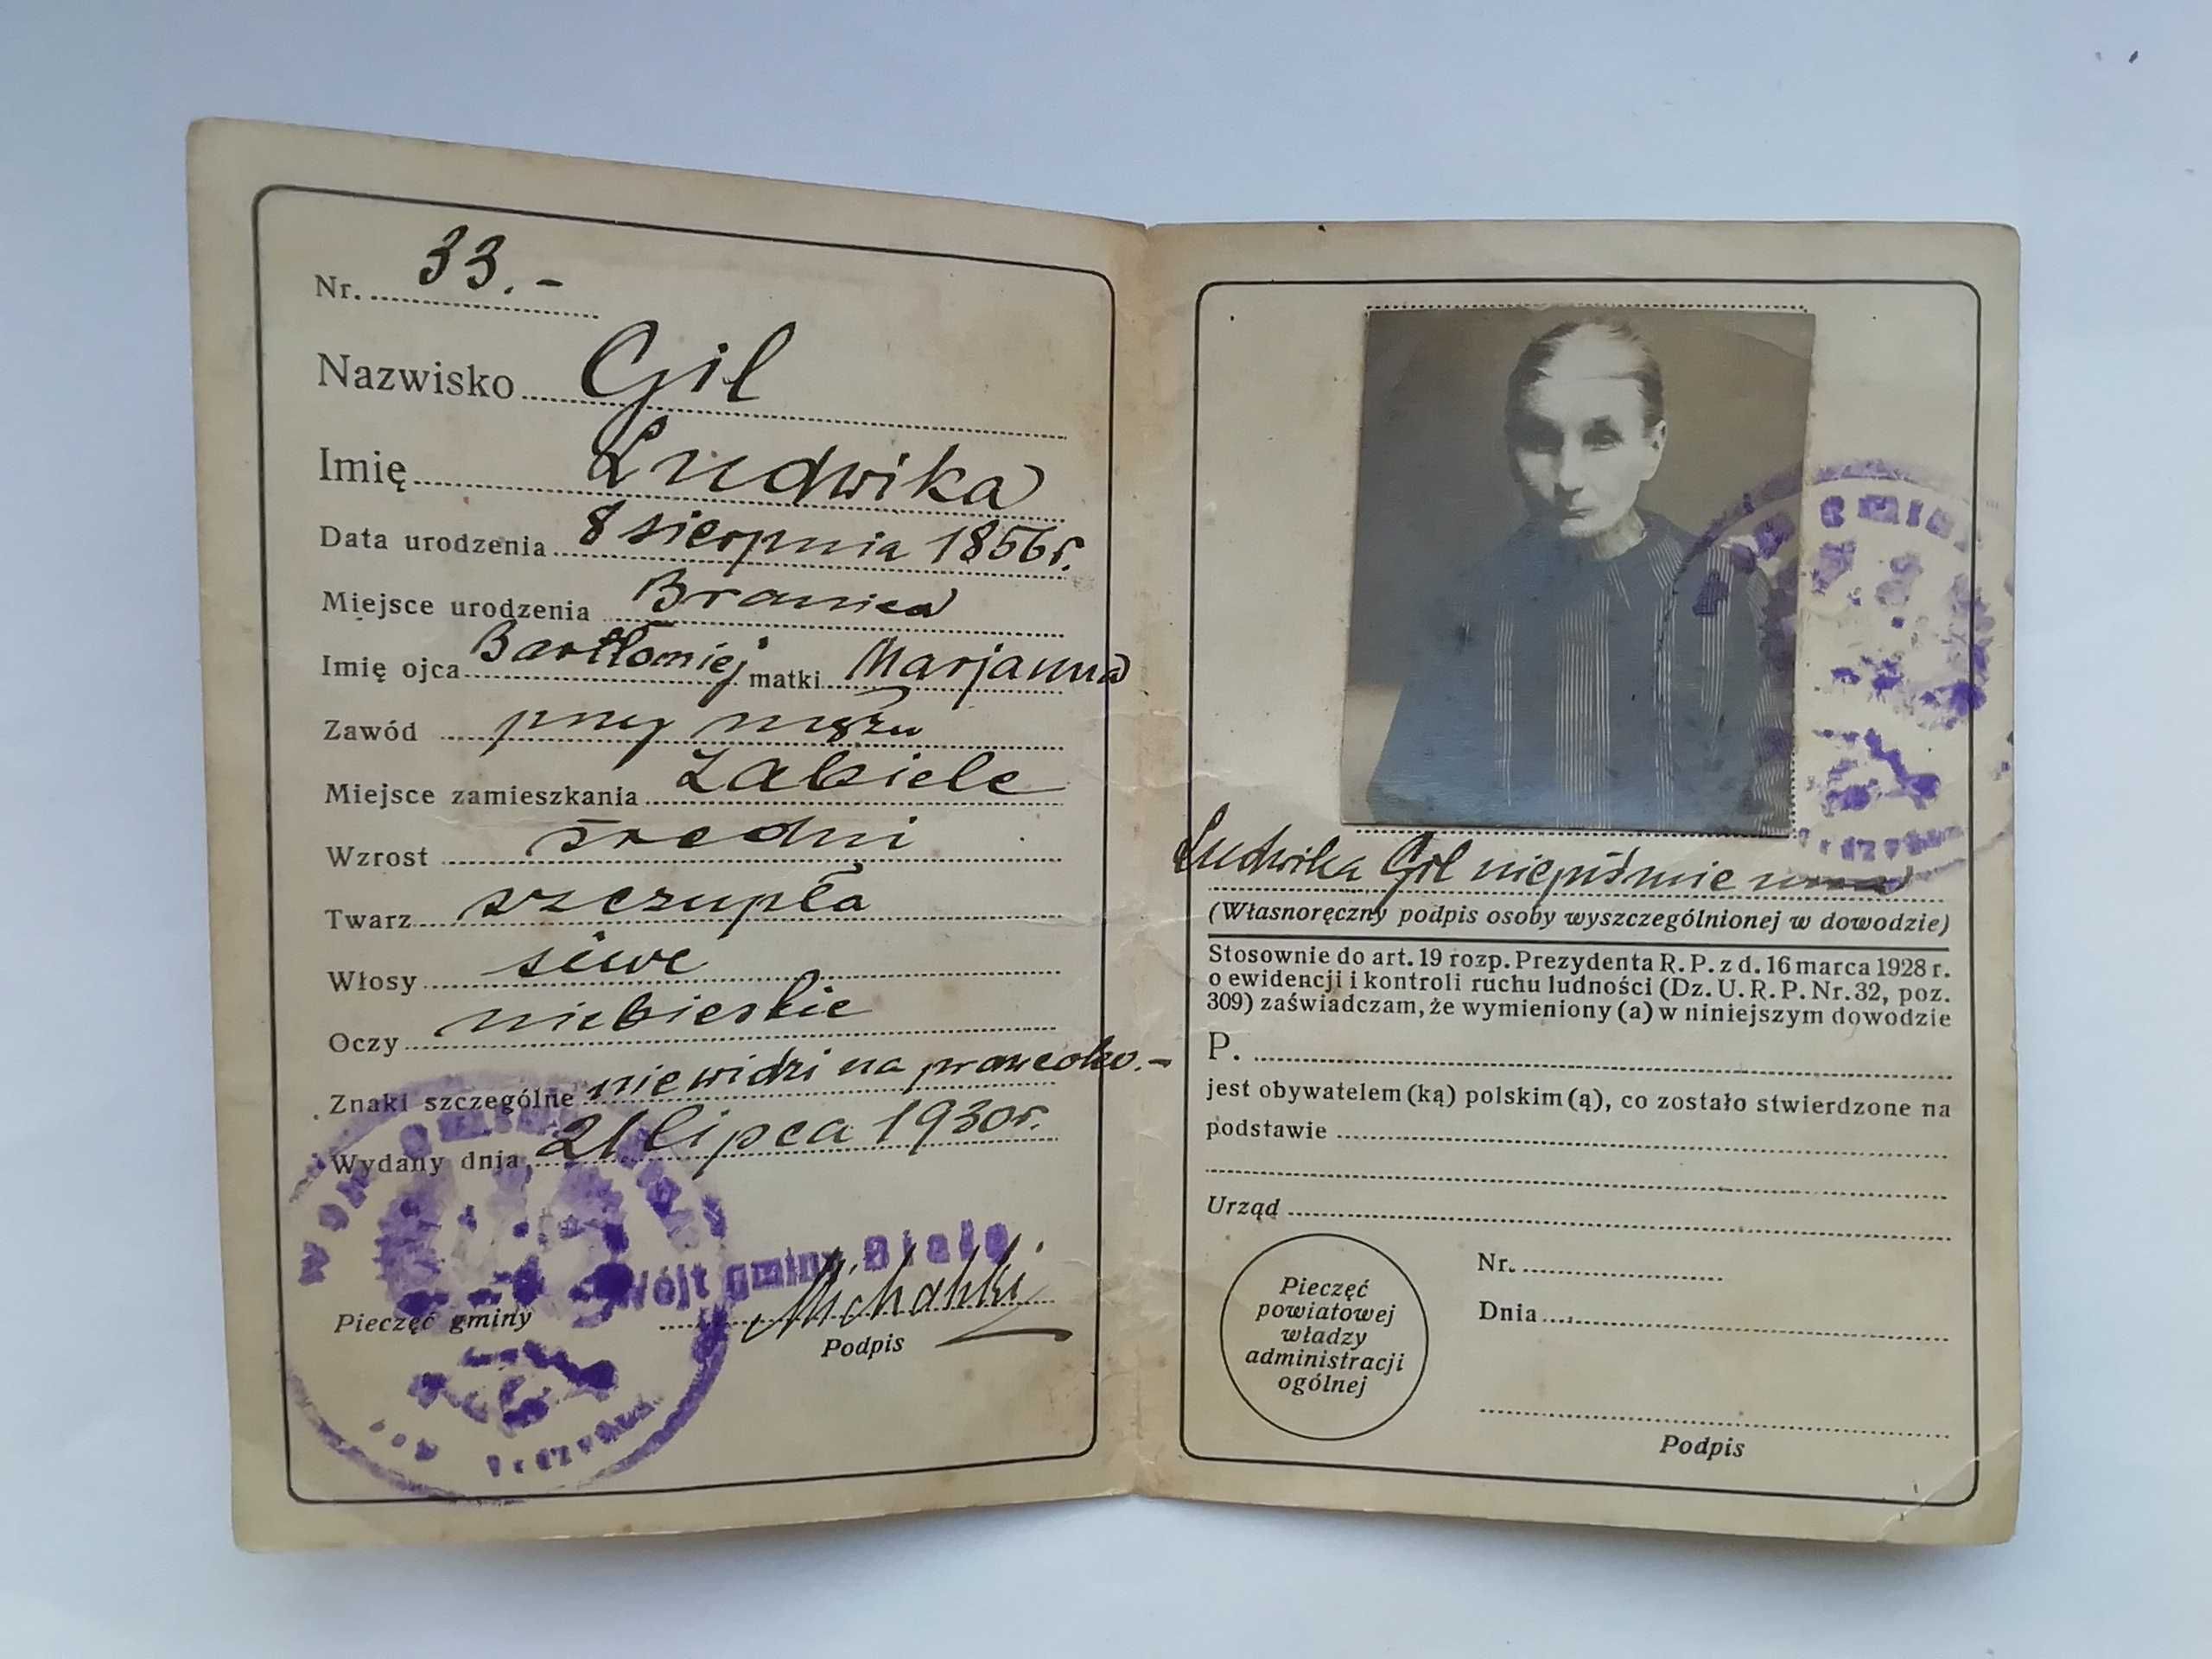 Nr. 33.-
Nazwisko Gil
Imię Ludwika
Data urodzenia 8 sierpnia 1856 r.
Miejsce urodzenia Branica
Imię ojca Bartłomiej matki Marjanna
Zawód przy mężu
Miejsce zamieszkania Zabiele
Wzrost średni
Twarz szczupła
Włosy siwe
Oczy niebieskie
Znaki szczególne nie widzi na prawe oko.-
Wydany dnia 21 lipca 1930 r.
Wójt gminy Biała
Pieczęć gminy
Podpis
Ludwika Gil niepiśmienna
(Własnoręczny podpis osoby wyszczególnionej w dowodzie)
Stosownie do art. 19 rozp. Prezydenta R. P. z d. 16 marca 1928 r.
o ewidencji i kontroli ruchu ludności (Dz. U. R. P. Nr. 32, poz.
309) zaświadczam, że wymieniony (a) w niniejszym dowodzie
P.
jest obywatelem (ką) polskim (ą), co zostało stwierdzone na
podstawie
Urząd
Pieczęć
powiatowej
władzy
administracji
ogólnej
Nr.
Dnia
Podpis